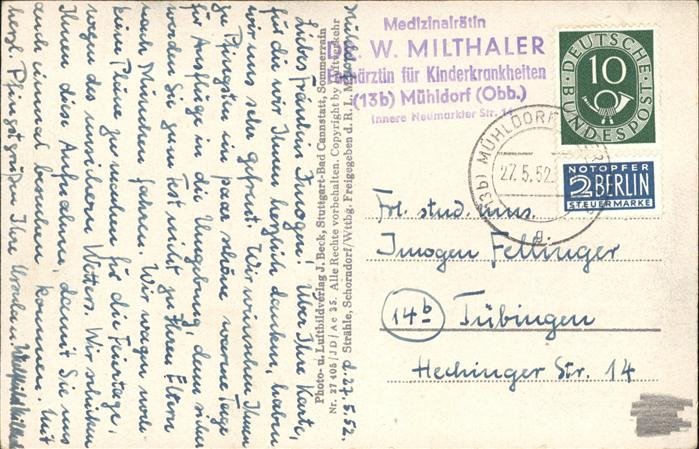 Medizinalrätin
Dr. W. MILTHALER
Fachärztin für Kinderkrankheiten
(13b) Mühldorf (Obb.)
Innere Neumarkter Str. 14
DEUTSCHE
BUNDESPOST
10
NOTOPFER
2 BERLIN
STEUERMARKE
(13b) MÜHLDORF
27.5.52
g
Frl. stud. mus.
Imogen Fellinger
14b Tübingen
Hechinger Str. 14
Photo- u. Luftbildverlag J. Beck, Stuttgart-Bad Cannstatt, Sommerrain
Nr. 27 405/JD/Ac 35. Alle Rechte vorbehalten. Copyright by Luftverkehr
Strähle, Schorndorf/Wttbg. Freigegeben d. R. L. M.
Mühldorf, d. 27.5.52.
Liebes Fräulein Imogen! Über Ihre Karte,
für die wir Ihnen herzlich danken, haben
wir uns sehr gefreut. Wir wünschen Ihnen
zu Pfingsten ein paar schöne warme Tage
für Ausflüge in die Umgebung, denn sicher
werden Sie zum Fest nicht zu Ihren Eltern
nach München fahren. Wir wagen noch
keine Pläne zu machen für die Feiertage,
wegen des unsichern Wetters. Wir schicken
Ihnen diese Aufnahme, damit Sie uns
auch einmal besuchen kommen. Mit
herzl. Pfingstgrüßen Ihre